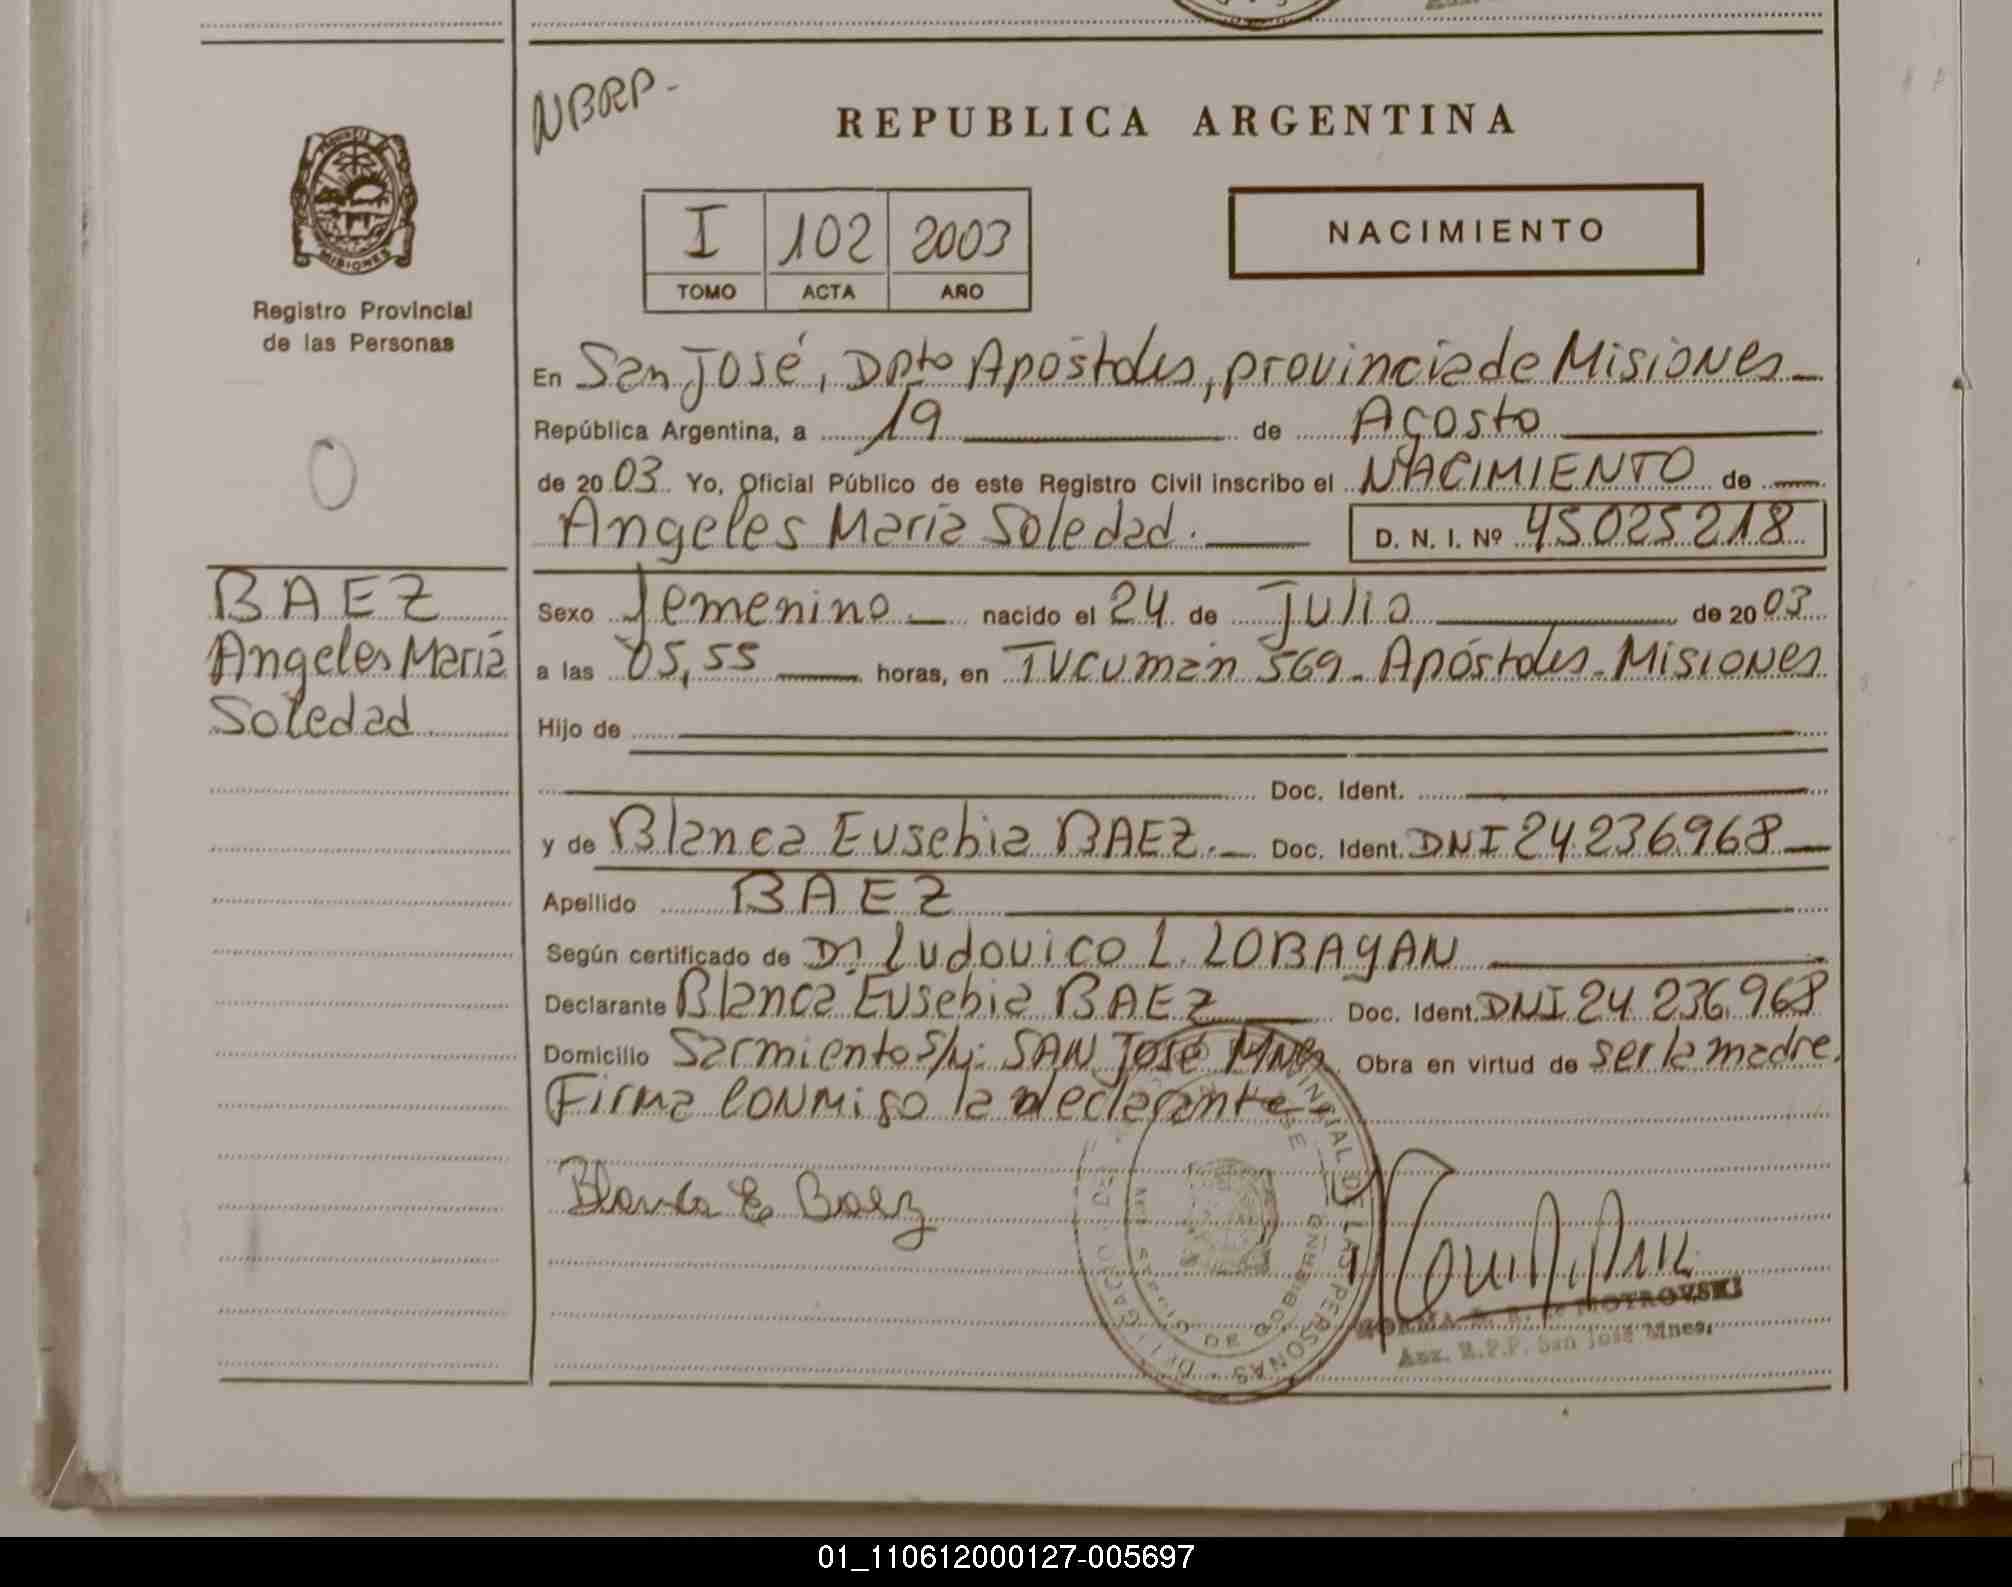 NBRP-
REPUBLICA ARGENTINA
MISIONES
Registro Provincial
de las Personas
I 102 2003
TOMO ACTA AÑO
NACIMIENTO
En San José, Dpto Apóstoles, provincia de Misiones
República Argentina, a 19 de Agosto
de 20 03 Yo, Oficial Público de este Registro Civil inscribo el NACIMIENTO de
Angeles María Soledad. D. N. I. Nº 45025218
BAEZ
Angeles María
Soledad
Sexo femenino nacido el 24 de Julio de 20 03
a las 05,55 horas, en Tucumán 569 - Apóstoles - Misiones
Hijo de
Doc. Ident.
y de Blanca Eusebia BAEZ. Doc. Ident. DNI 24.236968
Apellido BAEZ
Según certificado de Dr. Ludovico L. LOBAYAN
Declarante Blanca Eusebia BAEZ Doc. Ident. DNI 24 236.968
Domicilio Sarmiento S/N: SAN José Mnes Obra en virtud de ser la madre.
Firma conmigo la declarante
Blanca E Baez
DE LAS PERSONAS
DE GOBIERNO
PIOTROVSKI
Aux. R.P.P. San José Mnes.
01_110612000127-005697